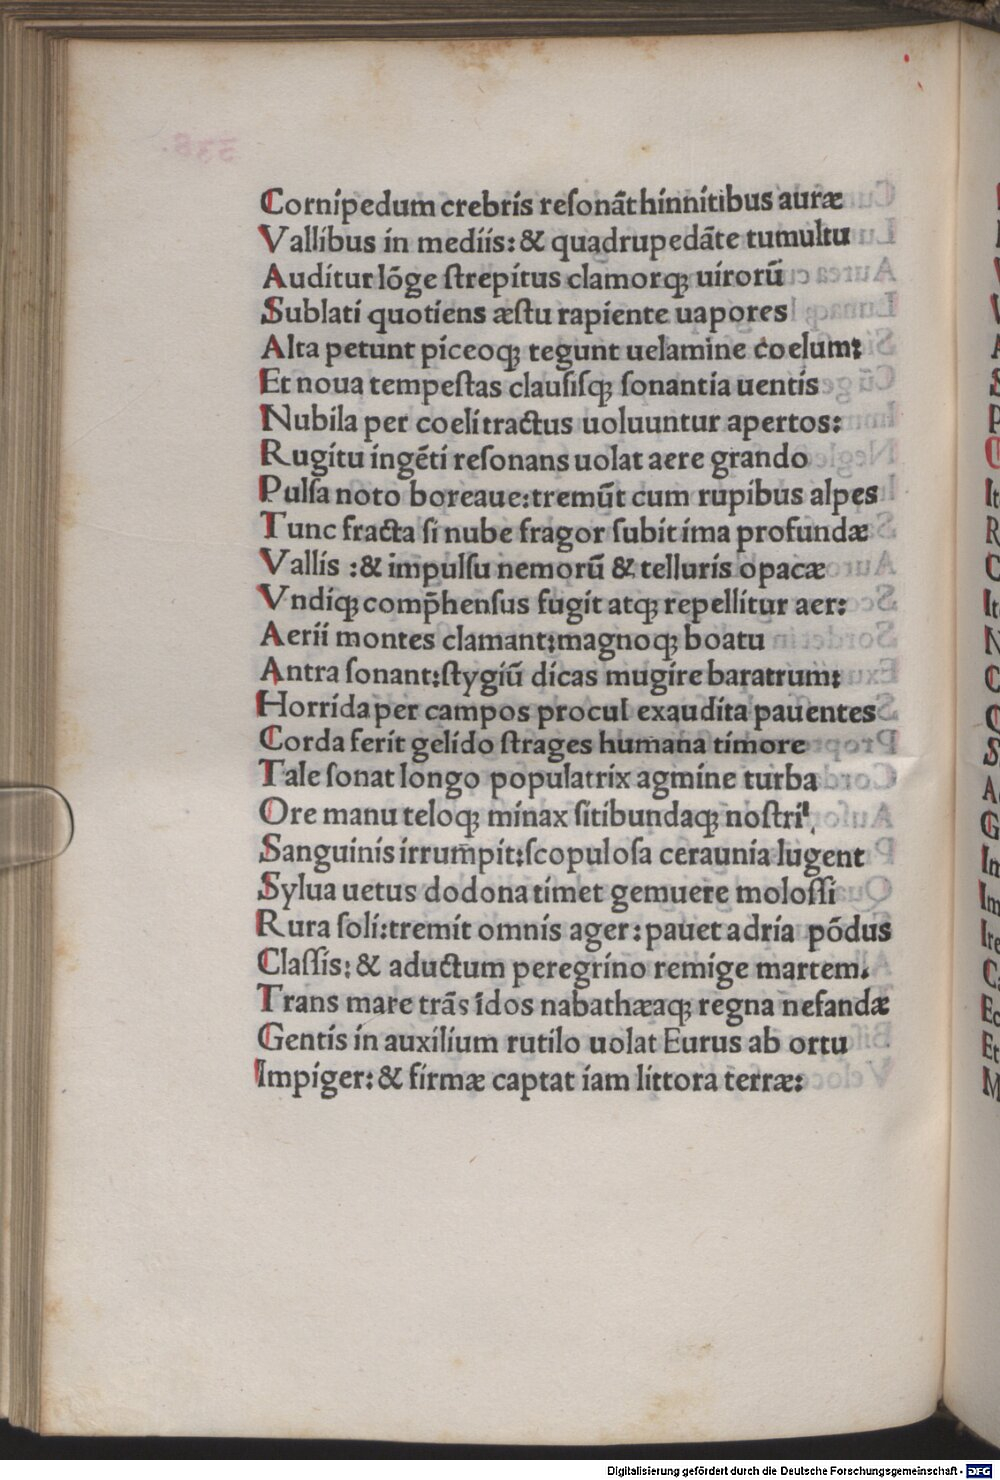 Cornipedum crebris reſonāt hinnitibus auræ
Vallibus in mediis: & quadrupedāte tumultu
Auditur lōge ſtrepitus clamorqꝫ uirorū
Sublati quotiens æſtu rapiente uapores
Alta petunt piceoqꝫ tegunt uelamine coelum:
Et noua tempeſtas clauſiſqꝫ ſonantia uentis
Nubila per coeli tractus uoluuntur apertos:
Rugitu ingēti reſonans uolat aere grando
Pulſa noto boreaue: tremūt cum rupibus alpes
Tunc fracta ſi nube fragor ſubit ima profundæ
Vallis : & impulſu nemorū & telluris opacæ
Vndiqꝫ comp̄henſus fugit atqꝫ repellitur aer:
Aerii montes clamant: magnoqꝫ boatu
Antra ſonant: ſtygiū dicas mugire baratrum:
Horrida per campos procul exaudita pauentes
Corda ferit gelido ſtrages humana timore
Tale ſonat longo populatrix agmine turba
Ore manu teloqꝫ minax ſitibundaqꝫ noſtri
Sanguinis irrumpit: ſcopuloſa ceraunia lugent
Sylua uetus dodona timet gemuere moloſſi
Rura ſoli: tremit omnis ager: pauet adria pōdus
Claſſis: & aductum peregrino remige martem.
Trans mare trās īdos nabathæaqꝫ regna nefandæ
Gentis in auxilium rutilo uolat Eurus ab ortu
Impiger: & firmæ captat iam littora terræ:
Digitalisierung gefördert durch die Deutsche Forschungsgemeinschaft - DFG